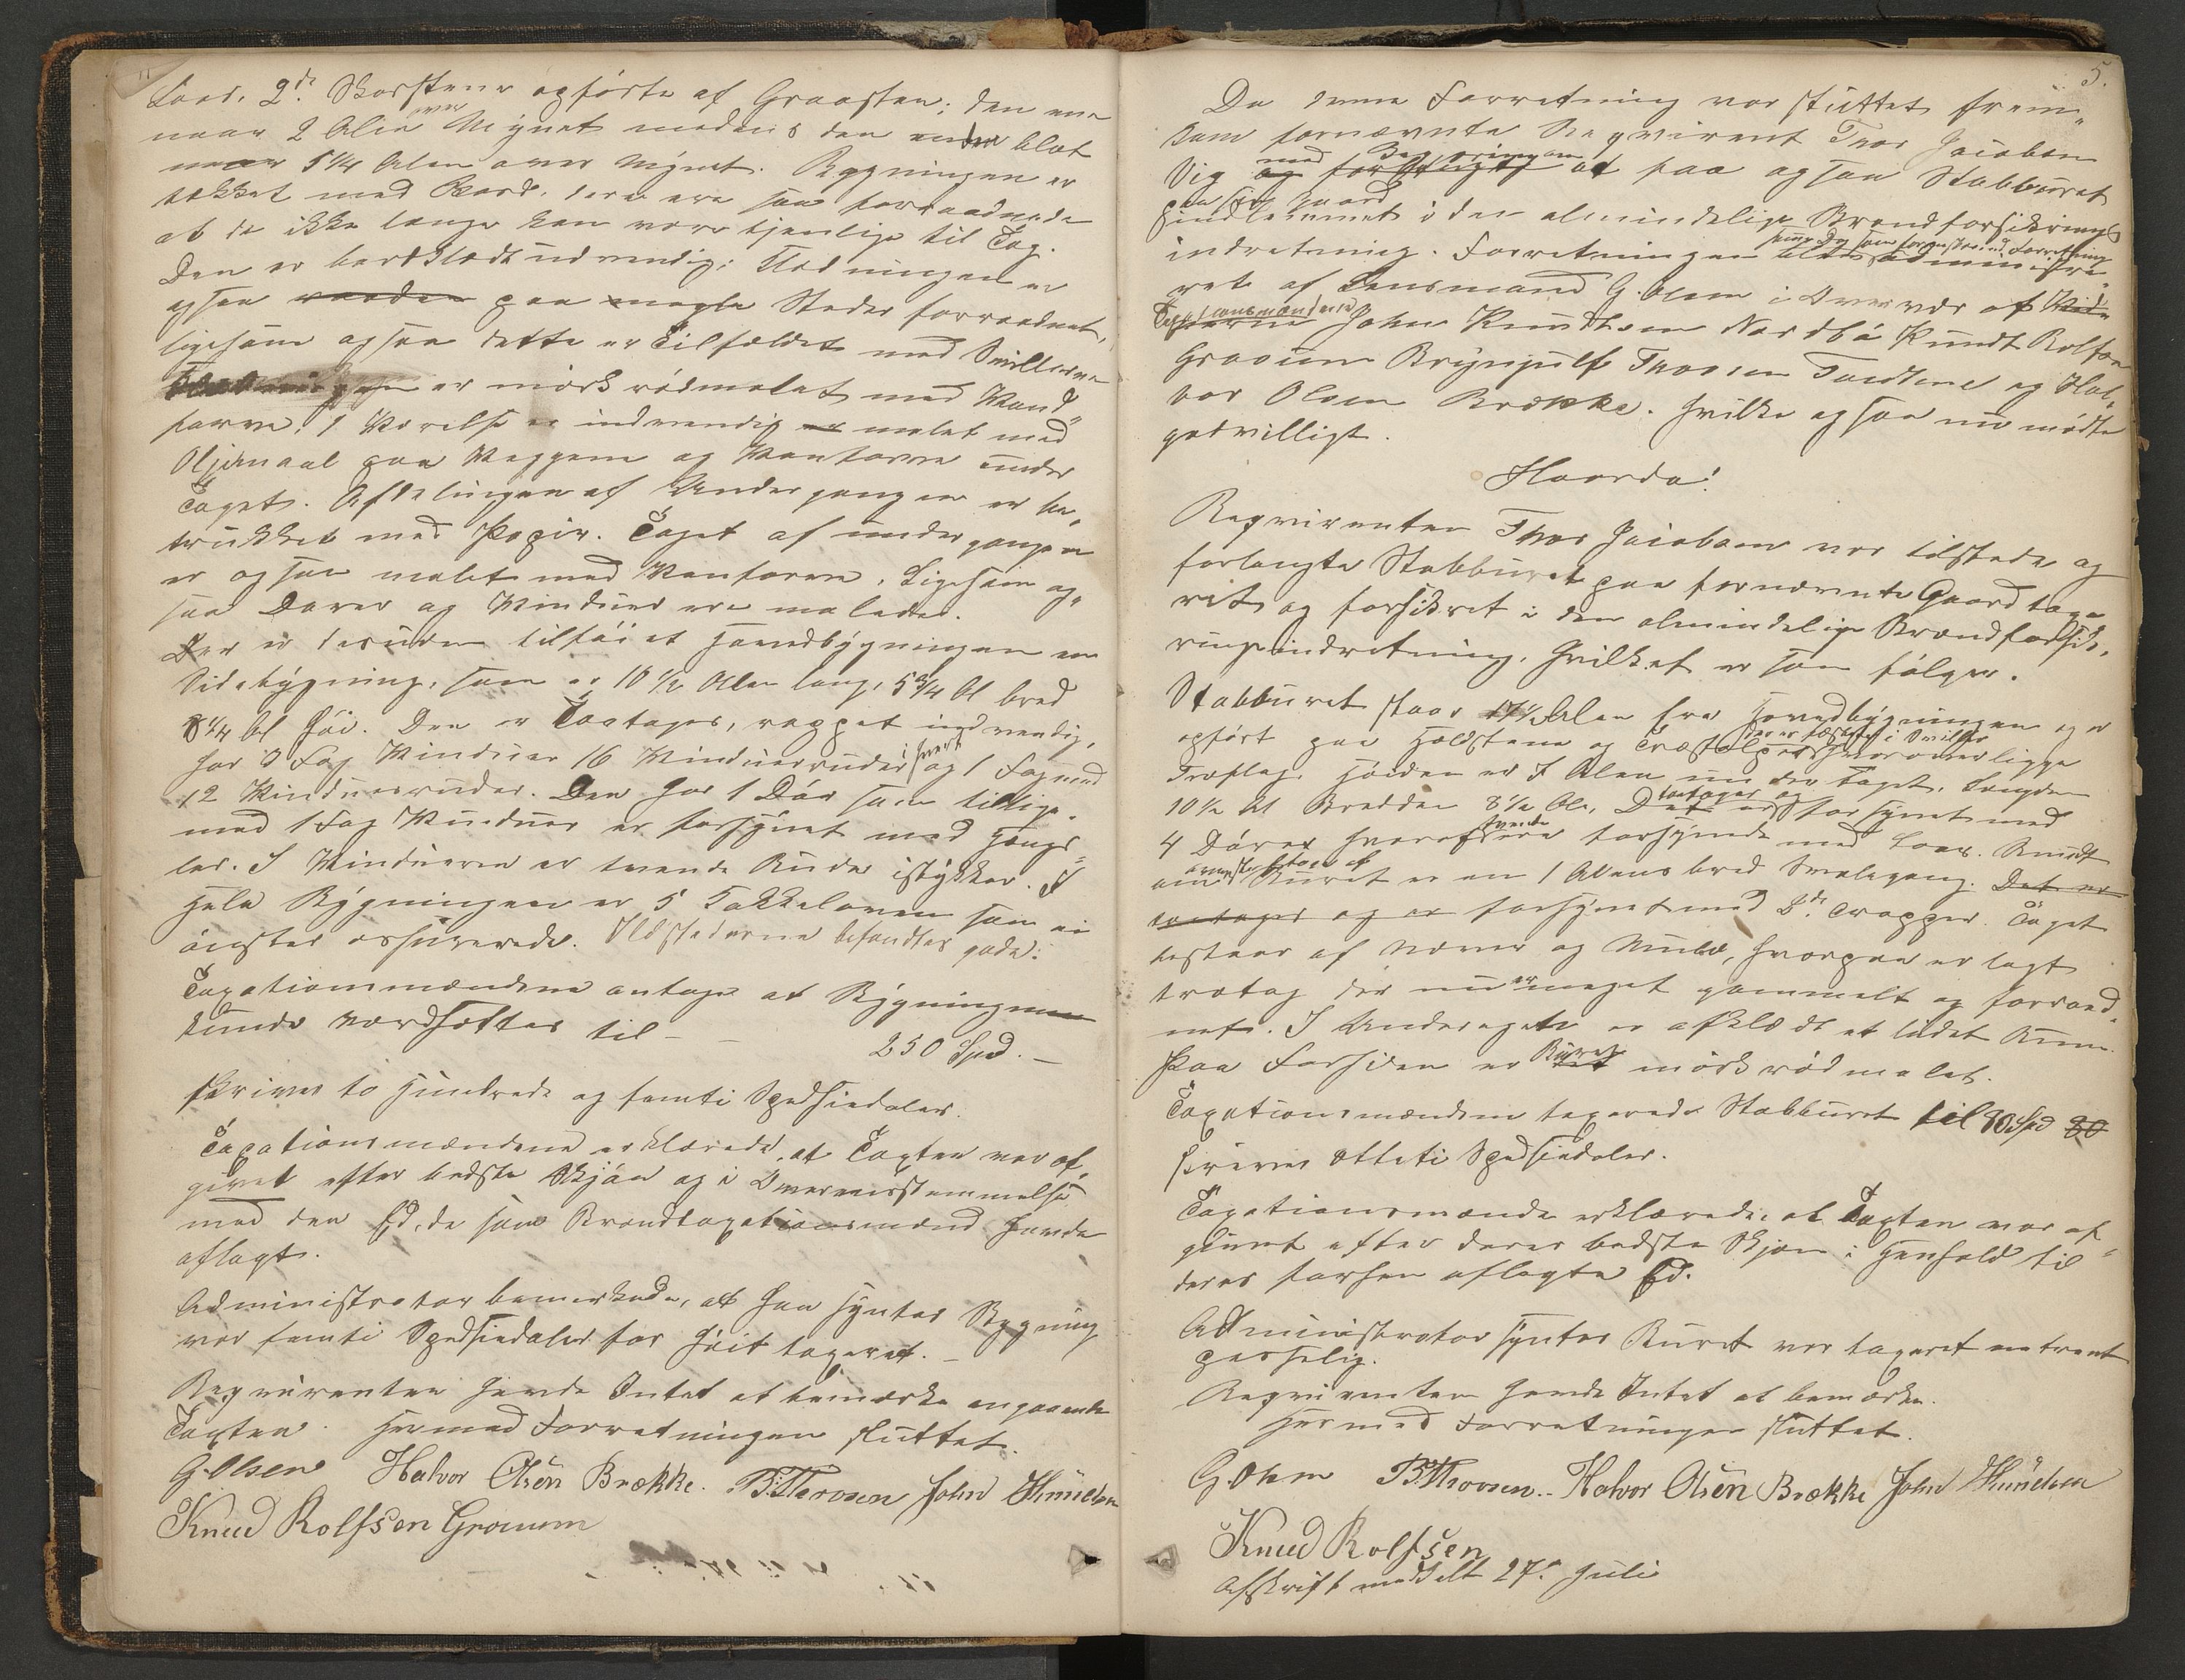 Laas. 2de Skorstene opførte af Graasten; den ene
naar 2 Alen over Mynet medens den anden blot
naar 5 1/4 Alen over Mynet. Bygningen er
tækket med Bord, dere ere saa forraadnede
at de ikke længe kan være tjenlige til Tag.
Den er bordklædt udvendig; Klædningen er
ogsaa paa nogle Steder forraadnet,
ligesom ogsaa dette er Tilfældet med Svillerne
er mørk rødmalet med Vand„
farve, 1 Værelse er indvendig er malet med
Oljemaal paa Væggene og Vandfarve under
Taget. Afdelingen af Undergangen er be„
trukket med Papir. Taget af undergangen
er ogsaa malet med Vandfarve. Ligesom og„
saa Dører og Vinduer ere malede.
Der er desuden tilføiet Hovedbygningen en
Sidebygning, som er 10 1/2 Alen lang, 5 3/4 Al bred
8 1/4 Al høi. Den er Toetages, reppet indvendig,
har 3 Fag Vinduer 16 Vinduesruder i hvert og 1 Fag med
12 Vinduesruder. Den har 1 Dør som tillige
med 1 Fag Vinduer er forsynet med Hængs„
ler. I Vinduerne er tvende Ruder istykker. I
Hele Bygningen er 5 Kakkelovne som ei
ønskes assurerede. Ildstederne befandtes gode.
Taxationsmændene antoge at Bygningen
kunde værdsættes til – – 250 Spd. –
skriver to Hundrede og femti Spedsiedaler.
Taxationsmændene erklærede, at Taxten var af„
givet efter bedste Skjøn og i Overensstemmelse
med den Ed, de som Brandtaxationsmænd havde
aflagt.
Administrator bemærkede, at han syntes Bygning
var femti Spedsiedaler for høit taxeret. –
Reqvirenten havde Intet at bemærke angaaende
Taxten. Hermed Forretningen sluttet.
G. Olsen Halvor Olsen Brække. B. Thorosen John Knudsen
Knud Rolfsen Groven
5.
Da denne Forretning var sluttet frem„
kom fornævnte Reqvirent Thor Jacobsen
Vig og med Begjæring om at faa ogsaa Stabburet
paa sin Gaard
indlemmet i den almindelige Brandforsikrings
indretning. Forretningen blev samme Dag som foranstaaende Forretning
ret af Lensmand G. Olsen i Overvær af
Taxationsmændene John Knudsen Nordbø Knudt Rolfsen
Groven Brynjulf Thorsen Tveitene og Hal„
vor Olsen Brække. Hvilke ogsaa nu mødte
godvilligt.
Hvorda!
Reqvirenten Thor Jacobsen var tilstede og
forlangte Stabburet paa fornævnte Gaard taxe
ret og forsikret i den almindelige Brandforsik„
ringsindretning. Hvilket er som følger.
Stabburet staar 17 1/2 Alen fra Hovedbygningen og er
opført paa Hældstene og Træstolper der er fæstede i Sviller hvorover ligge
Træflag. Høiden er 7 Alen under Taget. Længden
10 1/2 Al Bredden 8 1/2 Ale. Det er toetages og forsynet med
4 Dører hvoraf tvende ere forsynede med Laas. Rundt
om øverste Etage af Buret er en 1 Alens bred Svalegang. Det er
toetages og er forsynet med 2de Trapper. Taget
bestaar af Næver og Muld, hvorpaa er lagt
trætag der nu er meget gammelt og forraad„
net. I Underetagen er afklædt et lidet Rum.
Paa Forsiden er Buret mørk rødmalet.
Taxationsmændene taxerede Stabburet til 80 Spd 80
skriver otteti Spedsiedaler.
Taxationsmænde erklærede, at Taxten var af„
givet efter deres bedste Skjøn i Henhold til
deres forhen aflagte Ed.
Administrator syntes Buret var taxeret omtrent
passelig.
Reqvirenten havde Intet at bemærke.
Hermed Forretningen sluttet.
G. Olsen B. Thorosen.. Halvor Olsen Brække John Knudsen
Knud Rolfsen
Afskrift meddelt 27de Juli